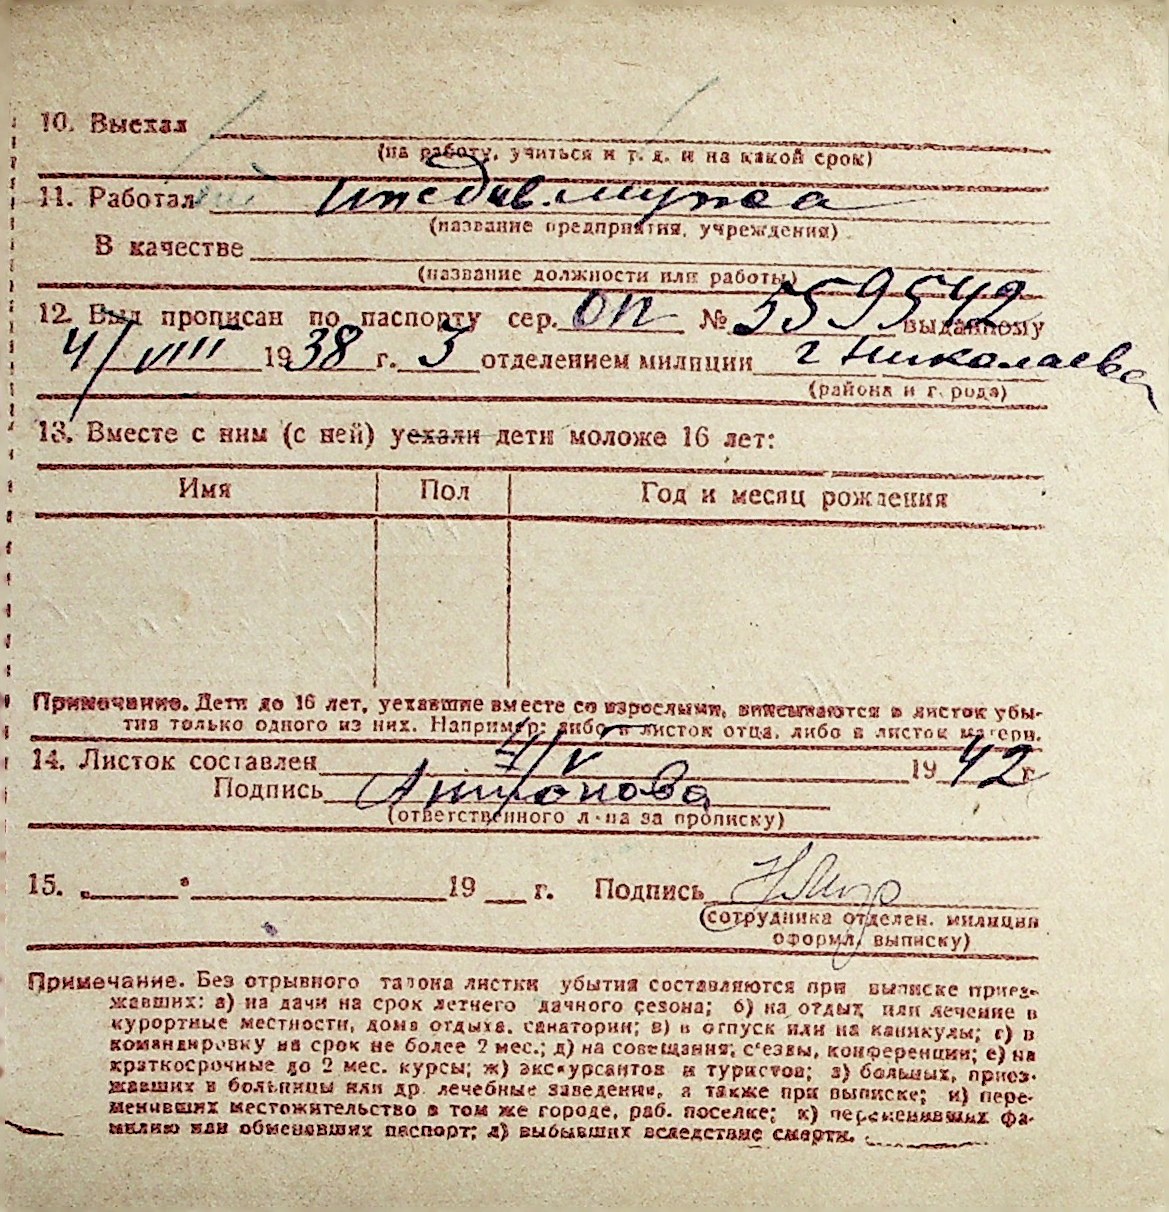 10. Выехал
(на работу, учиться и т. д. и на какой срок)
11. Работал иждив. мужа
(название предприятия, учреждения)
В качестве
(название должности или работы)
12. Был прописан по паспорту сер. ОП № 559542 выданному
4/VIII 1938 г. 3 отделением милиции г Николаева
(района и города)
13. Вместе с ним (с ней) уехали дети моложе 16 лет:
Имя Пол Год и месяц рождения
Примечание. Дети до 16 лет, уехавшие вместе со взрослыми, вписываются в листок убы-
тия только одного из них. Например: либо в листок отца, либо в листок матери.
14. Листок составлен 4/V 1942 г.
Подпись Антонова
(ответственного л-ца за прописку)
15. „ " 19 г. Подпись
(сотрудника отделен. милиции
оформл. выписку)
Примечание. Без отрывного талона листки убытия составляются при выписке приез-
жавших: а) на дачи на срок летнего дачного сезона; б) на отдых или лечение в
курортные местности, дома отдыха, санатории; в) в отпуск или на каникулы; г) в
командировку на срок не более 2 мес.; д) на совещания, с'езвы, конференции; е) на
краткосрочные до 2 мес. курсы; ж) экскурсантов и туристов; з) больных, приез-
жавших в больницы или др. лечебные заведения, а также при выписке; и) пере-
менивших местожительство в том же городе, раб. поселке; к) переменивших фа-
милию или обменявших паспорт; л) выбывших вследствие смерти.